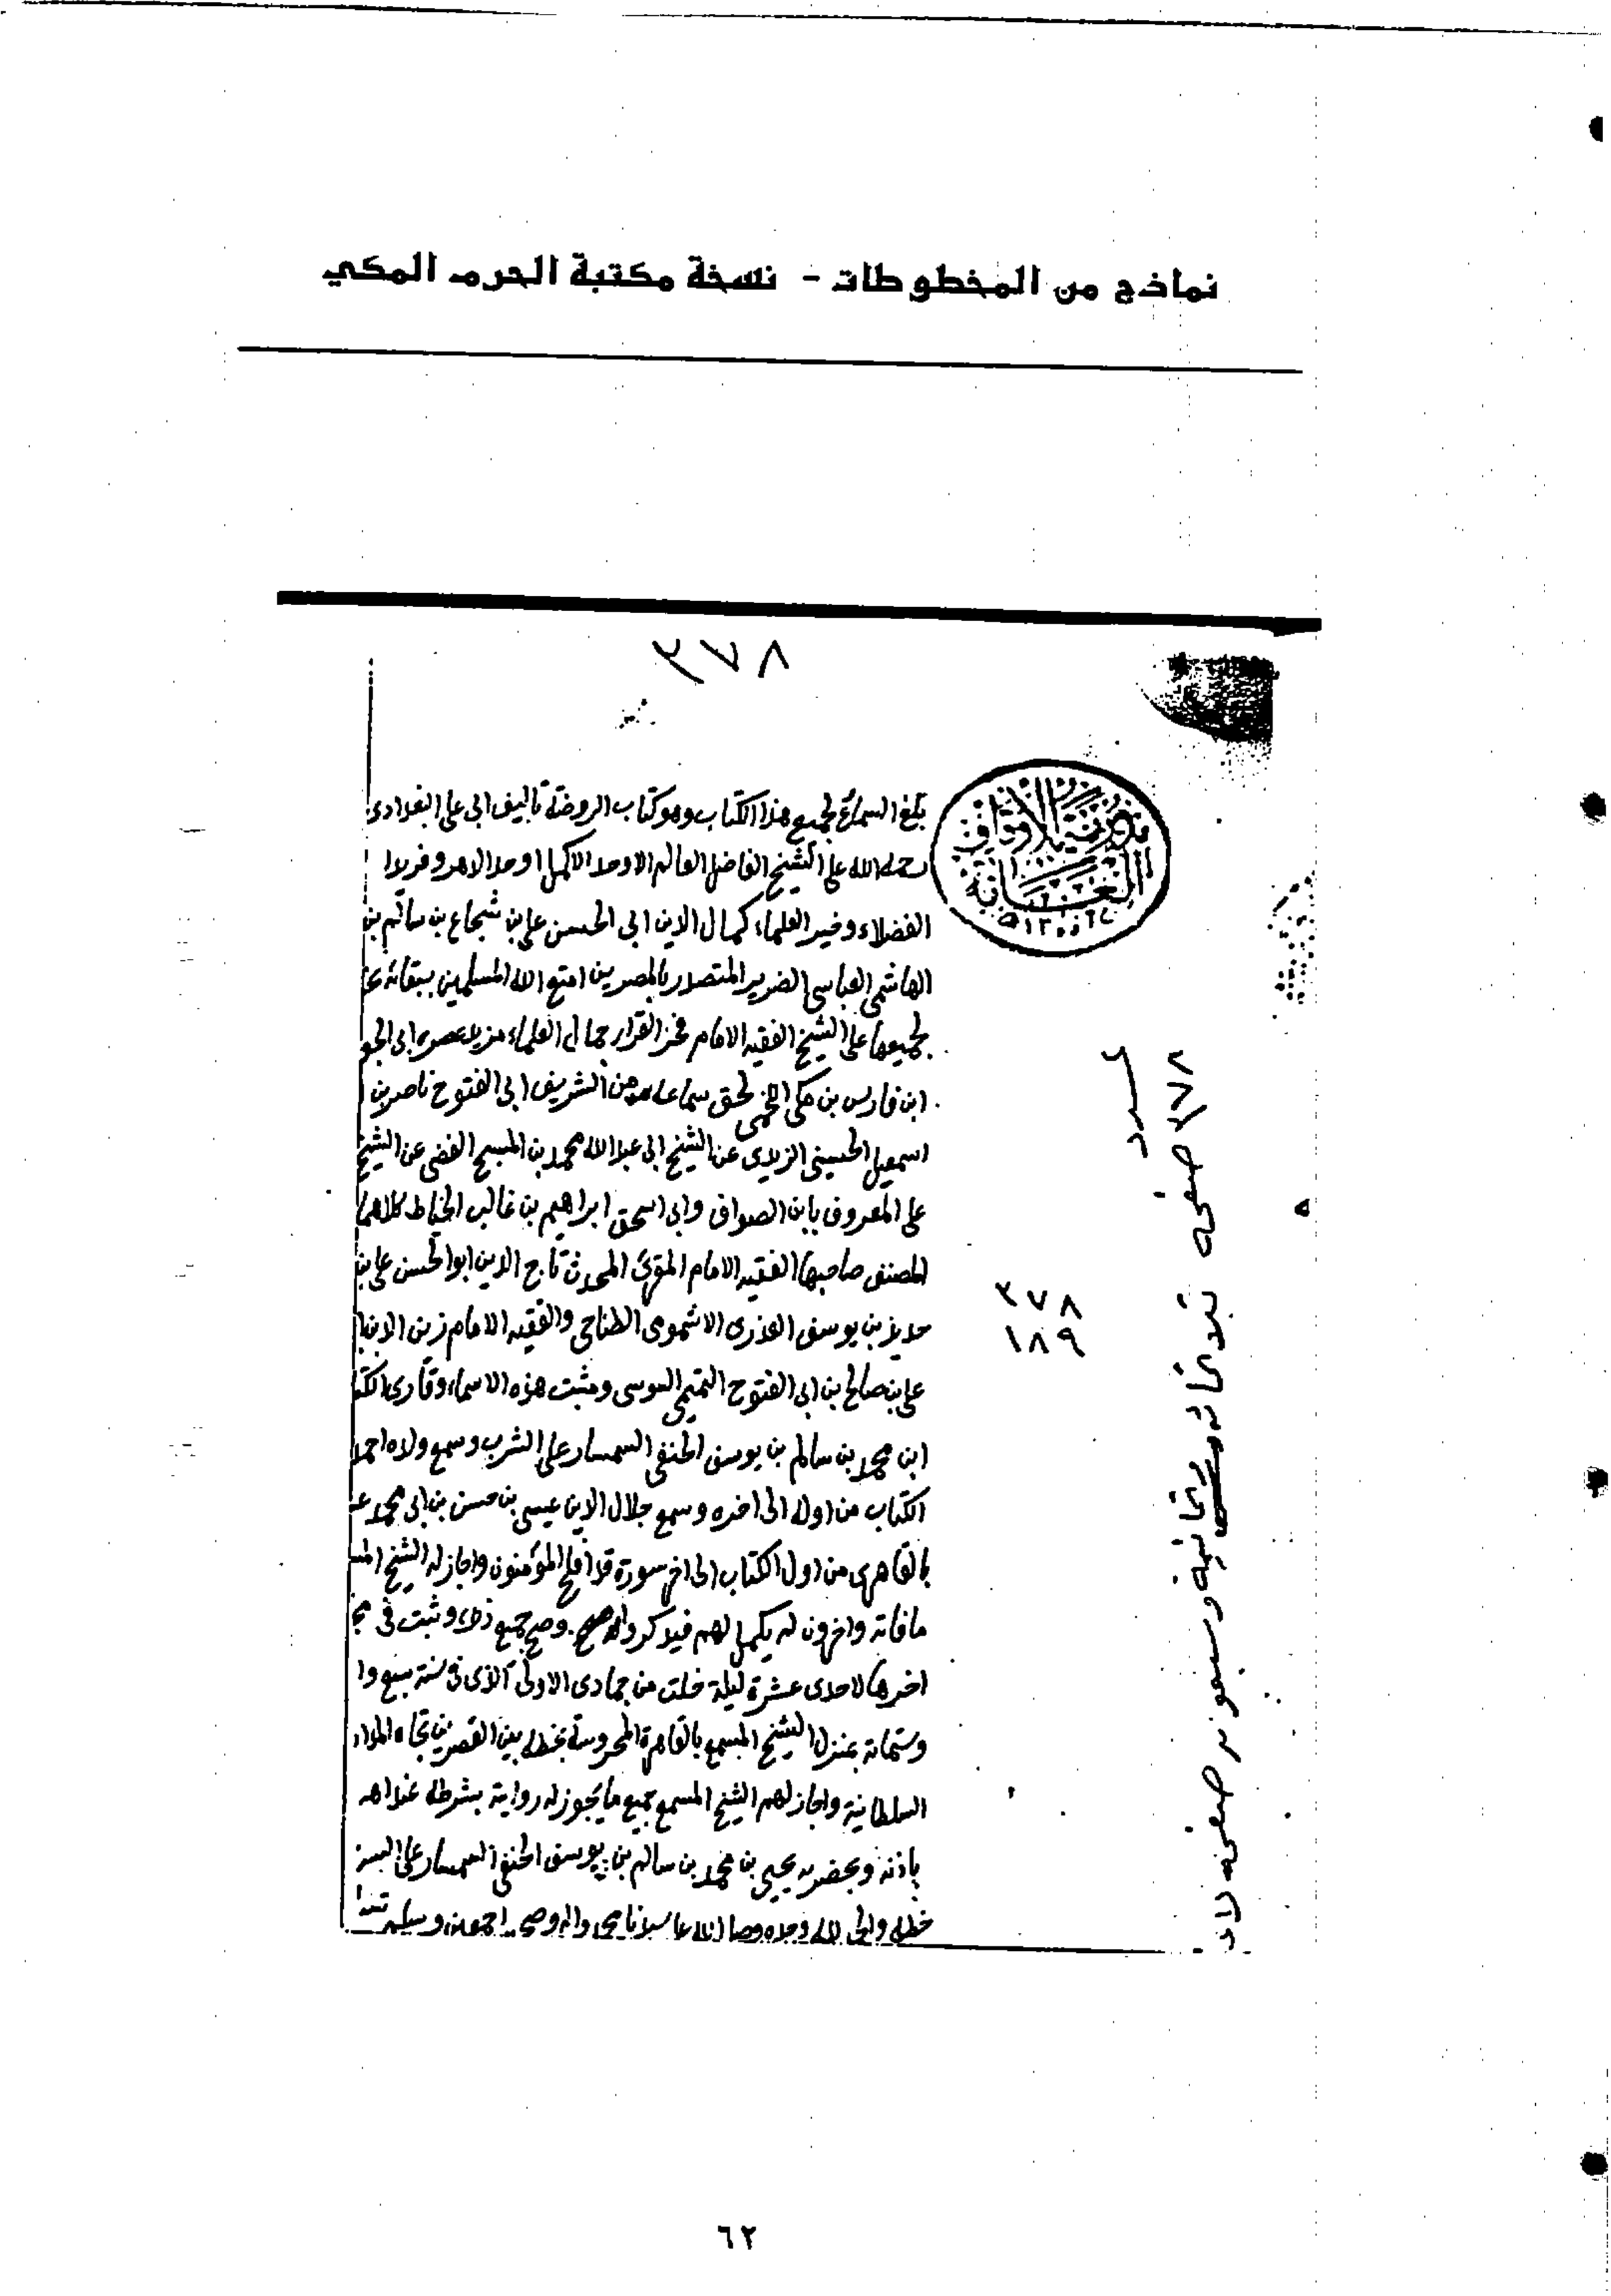 نماذج من المخطوطات - نسخة مكتبة الحرم المكي
٣٧٨
بلغ السماع لجميع هذا الكتاب وهو كتاب الروضة تاليف ابي علي البغدادي
رحمه الله على الشيخ الفاضل العالم الاوحد الاكمل اوحد الدهر وفريد ا
الفضلاء وفخر العلماء كمال الدين ابي الحسن علي بن شجاع بن سالم بن
الهاشمي العباسي الضرير المتصدر بالمصرين امتع الله المسلمين ببقائه
لجميعها على الشيخ الفقيه الامام فخر القراء جمال العلماء عصره ابي الجو
ابن فارس بن مكي اللخمي بحق سماعه من الشريف ابي الفتوح ناصر بن ا
اسمعيل الحسيني الزيدي عن الشيخ ابي عبد الله محمد بن المسبح الفضي عن الشيخ
علي المعروف بابن الصواف وابي اسحق ابراهيم بن غالب الخياط كلاهما
المصنف صاحبها الفقيه الامام المقرئ المحدث تاج الدين ابو الحسن علي بن
بن يوسف العذري الاشموي الطناحي والفقيه الامام زين الدين
علي بن صالح بن ابي الفتوح التميمي السوسي ومثبت هذه الاسماء وقارئ الكتا
ابن محمد بن سالم بن يوسف الحنفي السمسار على الشرب وسمع ولده احمد
الكتاب من اوله الى اخره وسمع جلال الدين عيسى بن حسن بن ابي محمد
القاهري من اول الكتاب الى اخر سورة قد افلح المؤمنون واجاز له الشيخ المس
مافاته واخرون لم يكمل لهم وصح جميع ذلك وثبت في
اخرها لاحدى عشرة ليلة خلت من جمادى الاولى الذي في سنة سبع وا
وستمائة بمنزل الشيخ المسمع بالقاهرة المحروسة بخط بين القصرين تجاه
السلطانية واجاز لهم الشيخ المسمع جميع ما يجوز له رواية بشرطه عند اهله
باذنه وبحضرته يحيى بن محمد بن سالم بن يوسف الحنفي السمسار على
خطه والحمد لله وحده وصلى الله على سيدنا محمد واله وصحبه اجمعين وسلم
١٣٠٠
عدد
٣٧٨ صفحه
٣٧٨
١٨٩
٦٢